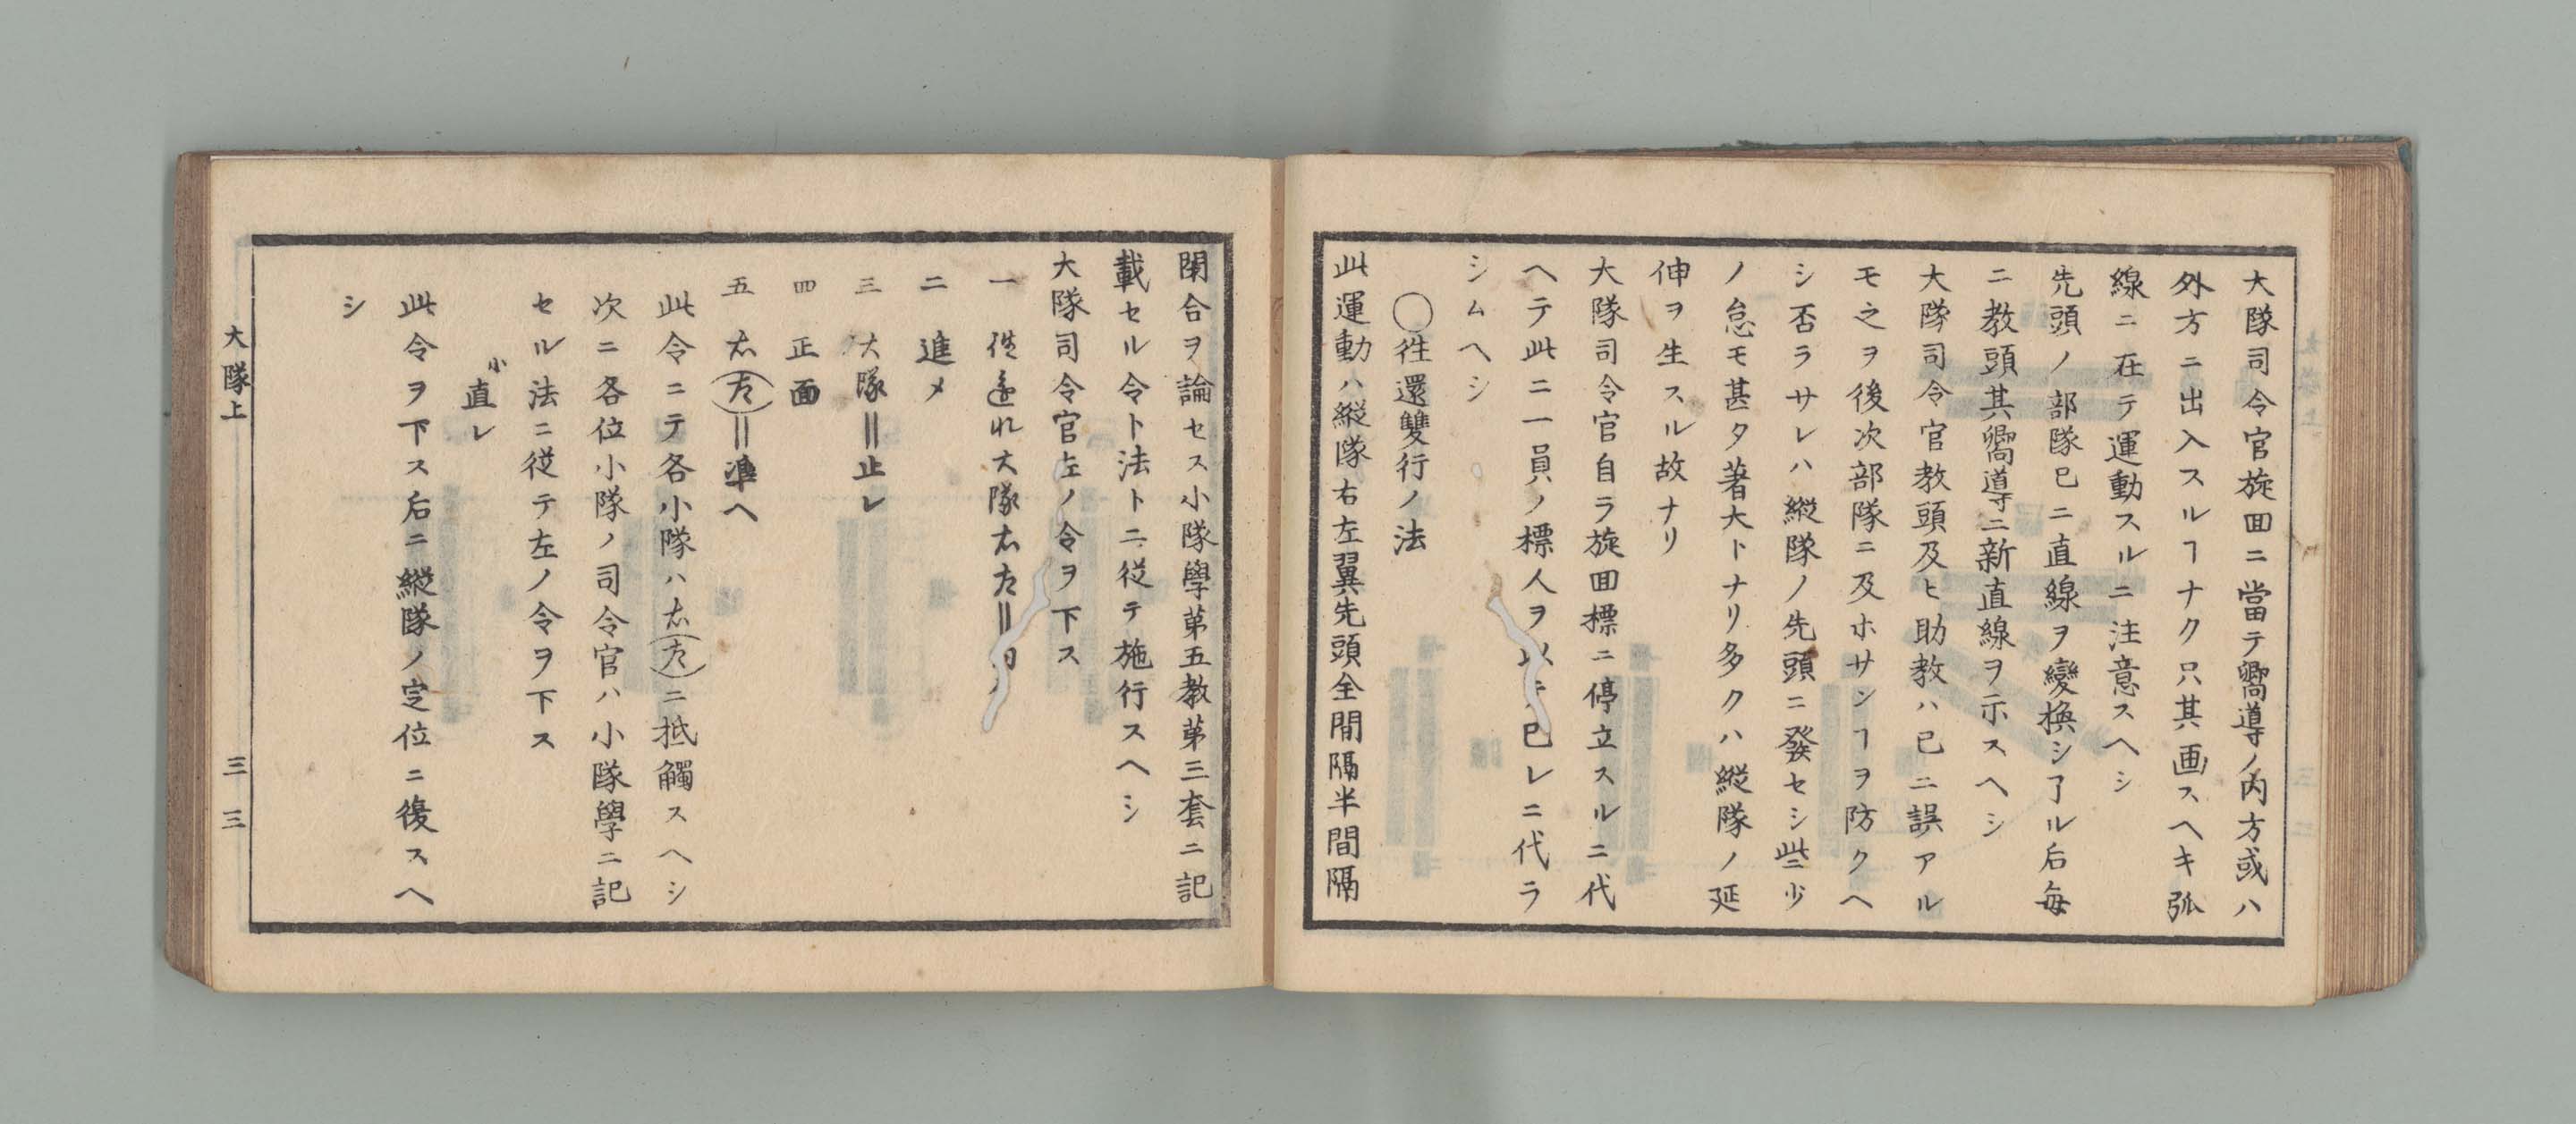 大隊司令官旋囬ニ當テ嚮導ノ内方或ハ
外方ニ出入スルヿナク只其画スヘキ弧
線ニ在テ運動スルニ注意スヘシ
先頭ノ部隊已ニ直線ヲ變換シ了ル后毎
ニ教頭其嚮導ニ新直線ヲ示スヘシ
大隊司令官教頭及ヒ助教ハ已ニ誤アル
モ之ヲ後次部隊ニ及ホサシヿヲ防クヘ
シ否ラサレハ縦隊ノ先頭ニ發セシ些少
ノ怠モ甚タ著大トナリ多クハ縦隊ノ延
伸ヲ生スル故ナリ
大隊司令官自ラ旋囬標ニ停立スルニ代
ヘテ此ニ一員ノ標人ヲ以テ已レニ代ラ
シムヘシ
〇徃還雙行ノ法
此運動ハ縦隊右左翼先頭全間隔半間隔
閉合ヲ論セス小隊學第五教第三套ニ記
載セル令ト法トニ従テ施行スヘシ
大隊司令官左ノ令ヲ下ス
一 徃還れ大隊右左‖
二 進メ
三 大隊‖止レ
四 正面
五 右(左)‖準へ
此令ニテ各小隊ハ右(左)ニ抵觸スヘシ
次ニ各位小隊ノ司令官ハ小隊學ニ記
セル法ニ従テ左ノ令ヲ下ス
小直レ
此令ヲ下ス后ニ縦隊ノ定位ニ復スヘ
シ
大隊上
三三